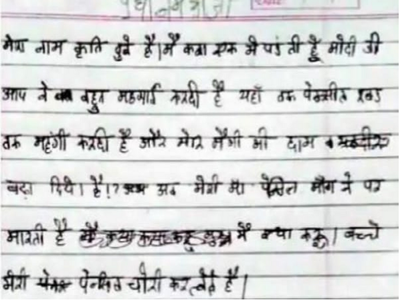 प्रधानमंत्री जी
मेरा नाम कृति दुबे है। मैं कक्षा एक में पढ़ती हूँ मोदी जी
आप ने बहुत महगाई करदी है यहाँ तक पेन्सील रबड़
तक महंगी करदी है और मेरे मैगी की भी दाम
बढ़ा दिये। है!? अब मेरी मा पेंसिल माँग ने पर
मारती है मैं क्या करू। बच्चे
मेरी पेन्सिल चोरी कर लेते है।